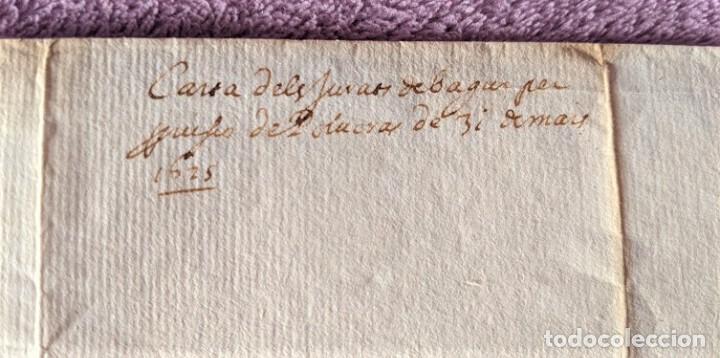 Carta dels Jurats de bagur per
de Polvoras de 31 de mars
1625
todocoleccion.net